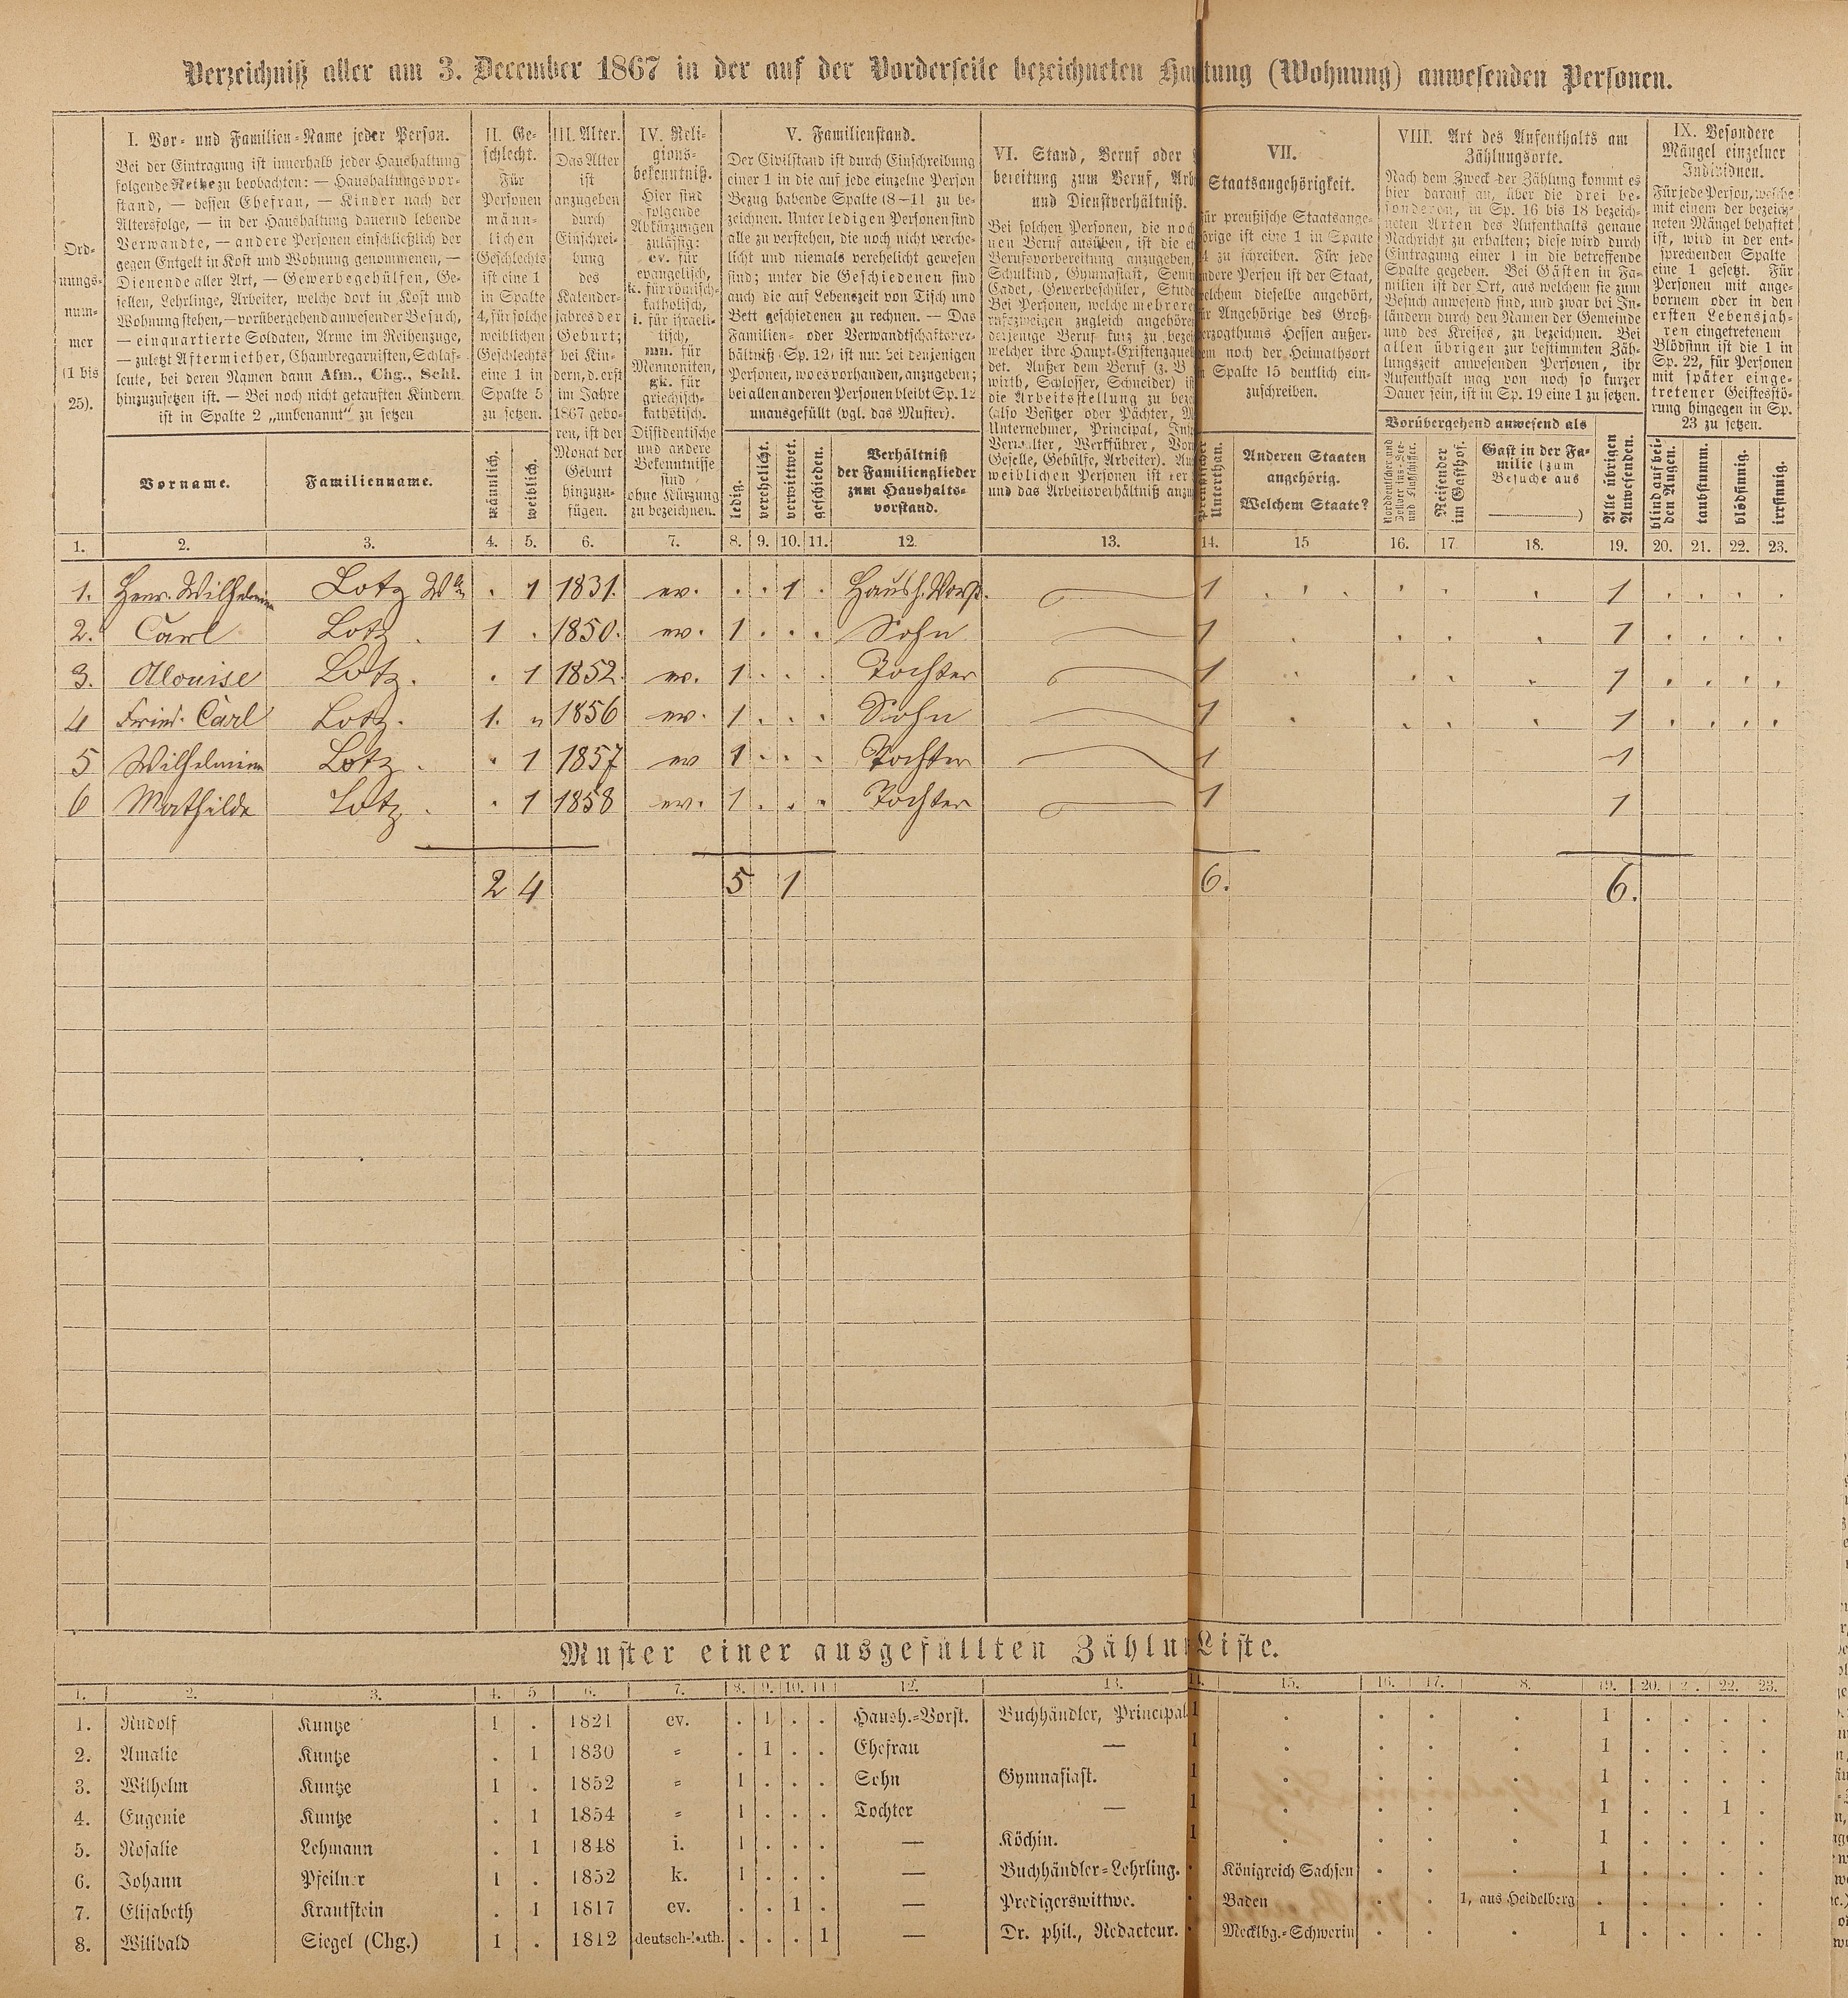 Verzeichniß aller am 3. December 1867 in der auf der Vorderseite bezeichneten Haltung (Wohnung) anwesenden Personen.
Ord-
nungs-
num-
mer
(1 bis
25).
I. Vor- und Familien-Name jeder Person.
Bei der Eintragung ist innerhalb jeder Haushaltung
folgende Reihe zu beobachten: — Haushaltungsvor-
stand, — dessen Ehefrau, — Kinder nach der
Altersfolge, — in der Haushaltung dauernd lebende
Verwandte, — andere Personen einschließlich der
gegen Entgelt in Kost und Wohnung genommenen, —
Dienende aller Art, — Gewerbegehülfen, Ge-
sellen, Lehrlinge, Arbeiter, welche dort in Kost und
Wohnung stehen, — vorübergehend anwesender Besuch,
— einquartierte Soldaten, Arme im Reihenzuge,
— zuletzt Aftermiether, Chambregarnisten, Schlaf-
leute, bei deren Namen dann Afm., Chg., Schl.
hinzuzusetzen ist. — Bei noch nicht getauften Kindern
ist in Spalte 2 „unbenannt“ zu setzen.
Vorname.
Familienname.
II. Ge-
schlecht.
Für
Personen
männ-
lichen
Geschlechts
ist eine 1
in Spalte
4, für solche
weiblichen
Geschlechts
eine 1 in
Spalte 5
zu setzen.
männlich.
weiblich.
III. Alter.
Das Alter
ist
anzugeben
durch
Einschrei-
bung
des
Kalender-
jahres der
Geburt;
bei Kin-
dern, d. erst
im Jahre
1867 gebo-
ren, ist der
Monat der
Geburt
hinzuzu-
fügen.
IV. Reli-
gions-
bekenntniß.
Hier sind
folgende
Abkürzungen
zulässig:
ev. für
evangelisch,
k. für römisch-
katholisch,
i. für israeli-
tisch,
mn. für
Mennoniten,
gk. für
griechisch-
katholisch.
Dissidentische
und andere
Bekenntnisse
sind
ohne Kürzung
zu bezeichnen.
V. Familienstand.
Der Civilstand ist durch Einschreibung
einer 1 in die auf jede einzelne Person
Bezug habende Spalte (8—11) zu be-
zeichnen. Unter ledigen Personen sind
alle zu verstehen, die noch nicht verehe-
licht und niemals verehelicht gewesen
sind; unter die Geschiedenen sind
auch die auf Lebenszeit von Tisch und
Bett geschiedenen zu rechnen. — Das
Familien- oder Verwandtschaftsver-
hältniß (Sp. 12) ist nur bei denjenigen
Personen, wo es vorhanden, anzugeben;
bei allen anderen Personen bleibt Sp. 12
unausgefüllt (vgl. das Muster).
ledig.
verehelicht.
verwittwet.
geschieden.
Verhältniß
der Familienglieder
zum Haushalts-
vorstand.
VI. Stand, Beruf oder
bereitung zum Beruf, Arb
und Dienstverhältniß.
Bei solchen Personen, die noch
nen Beruf ausüben, ist die et
Berufsvorbereitung anzugeben,
Schulkind, Gymnasiast, Semi
Cadet, Gewerbeschüler, Stude
Bei Personen, welche mehrere
rufszweigen zugleich angehören
derjenige Beruf kurz zu bezei
welcher ihre Haupt-Existenzquel
det. Außer dem Beruf (z. B.
wirth, Schlosser, Schneider) ist
die Arbeitsstellung zu beze
(also Besitzer oder Pächter, M
Unternehmer, Principal, Insp
Verwalter, Werkführer, Vor
Geselle, Gehülfe, Arbeiter). Au
weiblichen Personen ist der
und das Arbeitsverhältniß anzu
VII.
Staatsangehörigkeit.
Für preußische Staatsange-
hörige ist eine 1 in Spalte
14 zu schreiben. Für jede
andere Person ist der Staat,
welchem dieselbe angehört,
für Angehörige des Groß-
herzogthums Hessen außer-
dem noch der Heimathsort
in Spalte 15 deutlich ein-
zuschreiben.
Preußischer
Unterthan.
Anderen Staaten
angehörig.
Welchem Staate?
VIII. Art des Aufenthalts am
Zählungsorte.
Nach dem Zweck der Zählung kommt es
hier darauf an, über die drei be-
sonderen, in Sp. 16 bis 18 bezeich-
neten Arten des Aufenthalts genaue
Nachricht zu erhalten; diese wird durch
Eintragung einer 1 in die betreffende
Spalte gegeben. Bei Gästen in Fa-
milien ist der Ort, aus welchem sie zum
Besuch anwesend sind, und zwar bei In-
ländern durch den Namen der Gemeinde
und des Kreises, zu bezeichnen. Bei
allen übrigen zur bestimmten Zäh-
lungszeit anwesenden Personen, ihr
Aufenthalt mag von noch so kurzer
Dauer sein, ist in Sp. 19 eine 1 zu setzen.
Vorübergehend anwesend als
Norddeutscher und
Zollvereins-See-
und Flußschiffer.
Reisender
im Gasthof.
Gast in der Fa-
milie (zum
Besuche aus
)
Alle übrigen
Anwesenden.
IX. Besondere
Mängel einzelner
Individuen.
Für jede Person, welche
mit einem der bezeich-
neten Mängel behaftet
ist, wird in der ent-
sprechenden Spalte
eine 1 gesetzt. Für
Personen mit ange-
bornem oder in den
ersten Lebensjah-
ren eingetretenem
Blödsinn ist die 1 in
Sp. 22, für Personen
mit später einge-
tretener Geistesstö-
rung hingegen in Sp.
23 zu setzen.
blind auf bei-
den Augen.
taubstumm.
blödsinnig.
irrsinnig.
1. 2. 3. 4. 5. 6. 7. 8. 9. 10. 11. 12. 13. 14. 15 16. 17. 18. 19. 20. 21. 22. 23.
1. Henr. Wilhelmine Lotz . 1 1831. ev. . . 1 . Haush. Vorst. 1 . . . . . . 1 . . . .
2. Carl Lotz . 1 . 1850. ev. 1 . . . Sohn 1 . . . . 1 . . . .
3. Alouise Lotz. . 1 1852. ev. 1 . . . Tochter 1 . . . . 1 . . . .
4 Fried. Carl Lotz. 1. " 1856 ev. 1 . . . Sohn 1 . . . . 1 . . . .
5 Wilhelmine Lotz . . 1 1857 ev 1 . . . Tochter 1 1
6 Mathilde Lotz . . 1 1858 ev. 1 . . . Tochter 1 1
2 4 5 1 6. 6.
Muster einer ausgefüllten Zählu Liste.
1. 2. 3. 4. 5 6. 7. 8. 9. 10. 11 12. 13. 14. 15. 16. 17. 8. 19. 20. 2. 22. 23.
1. Rudolf Kuntze 1 . 1821 ev. . 1 . . Haush.-Vorst. Buchhändler, Principal. 1 . . . . 1 . . . .
2. Amalie Kuntze . 1 1830 = . 1 . . Ehefrau — 1 . . . . 1 . . . .
3. Wilhelm Kuntze 1 . 1852 = 1 . . . Sohn Gymnasiast. 1 . . . . 1 . . . .
4. Eugenie Kuntze . 1 1854 = 1 . . . Tochter — 1 . . . . 1 . . 1 .
5. Rosalie Lehmann . 1 1848 i. 1 . . . — Köchin. 1 . . . . 1 . . . .
6. Johann Pfeilner 1 . 1852 k. 1 . . . — Buchhändler-Lehrling. . Königreich Sachsen . . . 1 . . . .
7. Elisabeth Krautstein . 1 1817 ev. . . 1 . — Predigerswittwe. . Baden . . 1, aus Heidelberg . . . . .
8. Wilibald Siegel (Chg.) 1 . 1812 deutsch-kath. . . . 1 — Dr. phil., Redacteur. . Mecklbg.-Schwerin . . . 1 . . . .